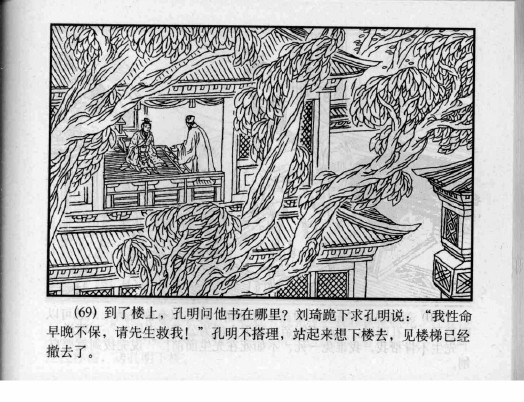 (69) 到了楼上，孔明问他书在哪里？刘琦跪下求孔明说：“我性命
早晚不保，请先生救我！”孔明不搭理，站起来想下楼去，见楼梯已经
撤去了。